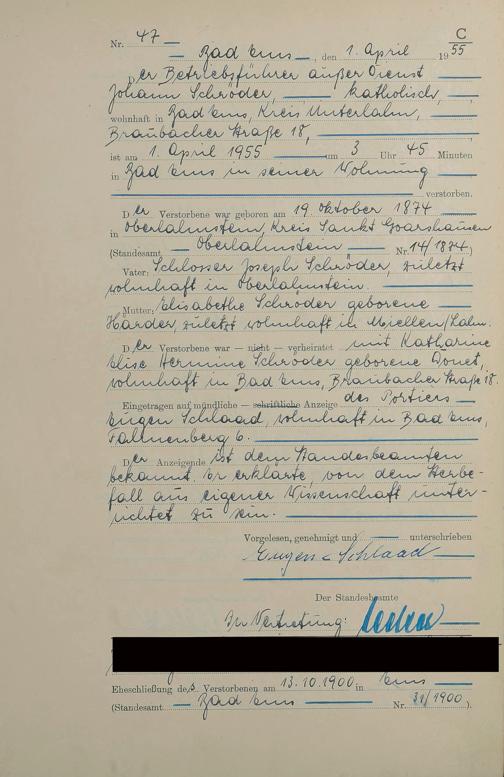 C
Nr. 47
Bad Ems, den 1. April 1955
Der Betriebsführer außer Dienst
Johann Schröder, katholisch,
wohnhaft in Bad Ems, Kreis Unterlahn,
Braubacher Straße 18,
ist am 1. April 1955 um 3 Uhr 45 Minuten
in Bad Ems in seiner Wohnung
verstorben.
Der Verstorbene war geboren am 19 Oktober 1874
in Oberlahnstein, Kreis Sankt Goarshausen
(Standesamt Oberlahnstein Nr. 14/1874.)
Vater: Schlosser Joseph Schröder, zuletzt
wohnhaft in Oberlahnstein.
Mutter: Elisabethe Schröder geborene
Harder, zuletzt wohnhaft in Miellen/Lahn.
Der Verstorbene war — nicht — verheiratet mit Katharine
Elise Hermine Schröder geborene
wohnhaft in Bad Ems, Braubacher Straße 18.
Eingetragen auf mündliche — schriftliche Anzeige des Portiers
Eugen Schlaad, wohnhaft in Bad Ems,
6.
Der Anzeigende ist dem Standesbeamten
bekannt. Er erklärte, von dem Sterbe-
fall aus eigener Wissenschaft unter-
richtet zu sein.
Vorgelesen, genehmigt und unterschrieben
Eugen Schlaad
Der Standesbeamte
In Vertretung:
Eheschließung des Verstorbenen am 13.10.1900 in Ems
(Standesamt Bad Ems Nr. 31/1900).